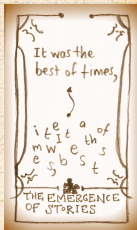 It was the
best of times,
i t e t a o f
m w e t h s
e s b s t
THE EMERGENCE
OF STORIES